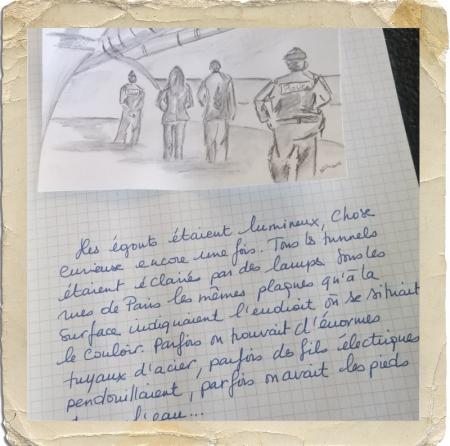 Les égouts étaient lumineux, chose
curieuse encore une fois. Tous les tunnels
étaient éclairés par des lamps. Sous les
rues de Paris les mêmes plaques qu'à la
surface indiquaient l'endroit on se situait
le couloir. Parfois on trouvait d'énormes
tuyaux d'acier, parfois des fils électriques
pendouillaient, parfois on avait les pieds
l'eau...